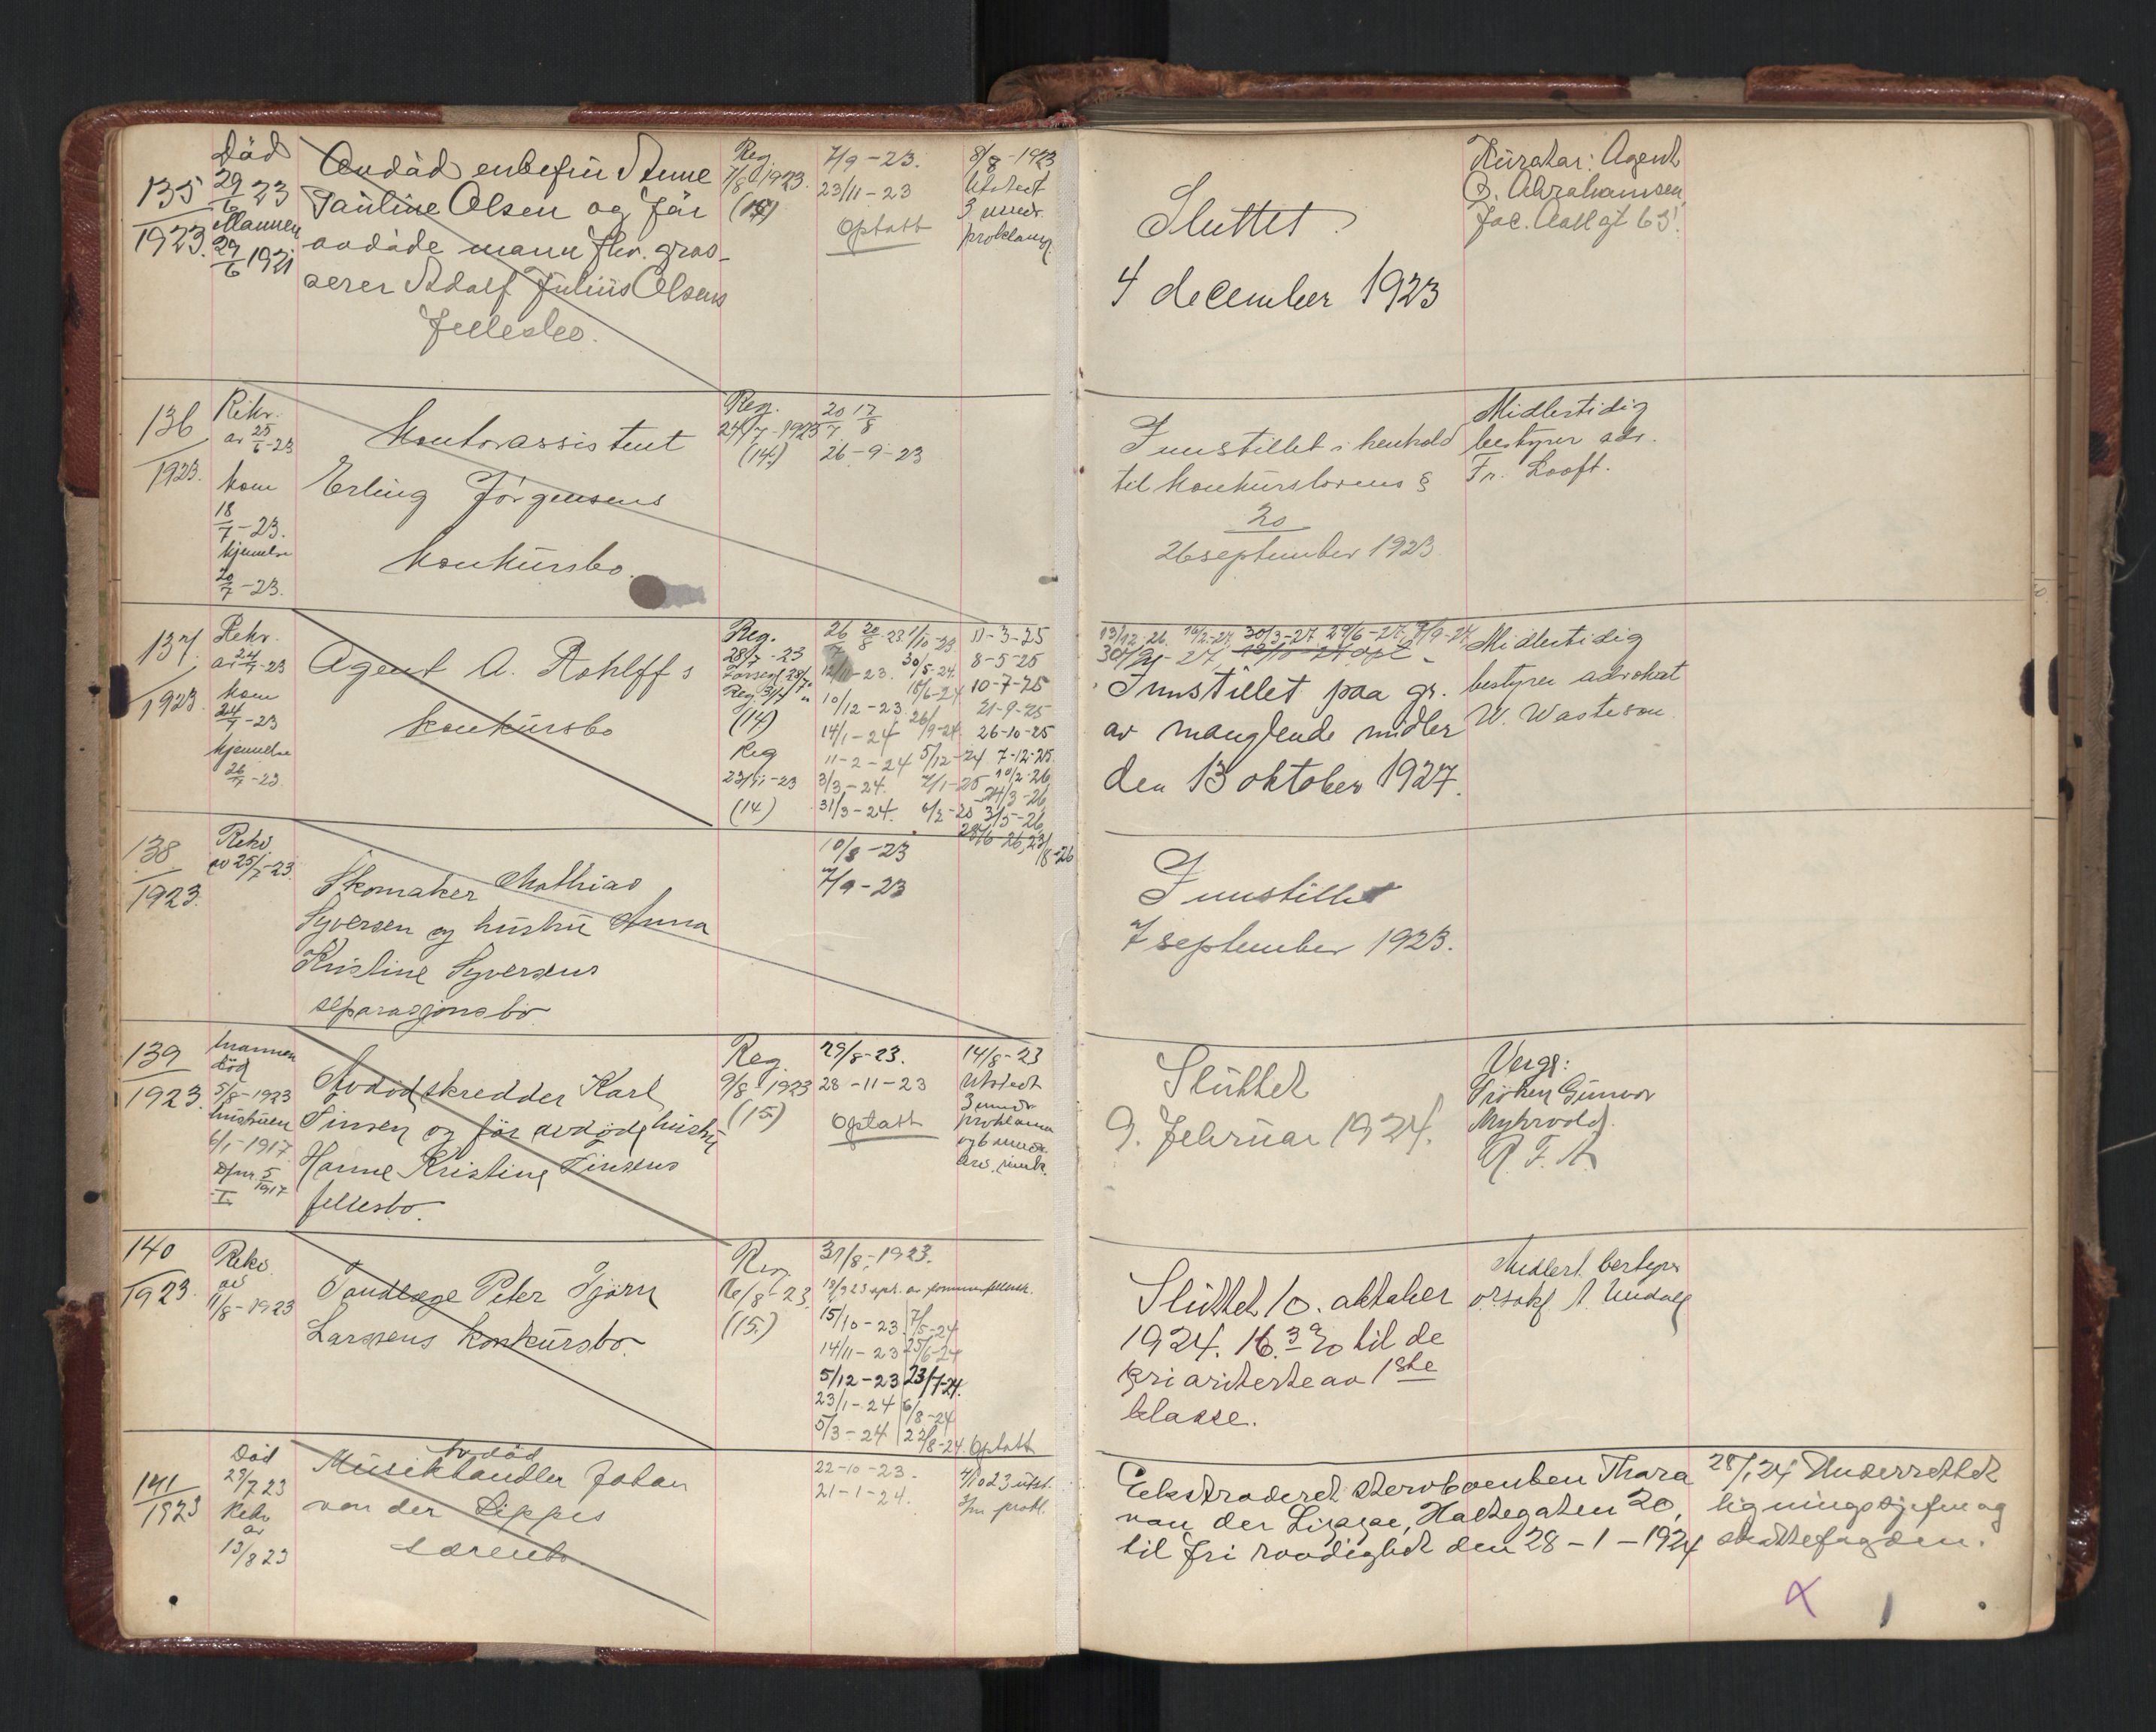 135
1923.
Död
29/6 23
Mannen
29/6 1921
Avdöd enkefru Anne
Pauline Olsen og før
avdöde mann fhv. gros-
serer Adolf Julius Olsens
fellesbo.
Reg.
7/8 1923.
7/9 - 23.
23/11 - 23
Optatt
8/8 - 1923
Utstedt
3 mndr.
proklama
Sluttet
4 december 1923
Kurator: Agent
O. Abrahamsen,
Jac. Aall gt 63!
136
1923.
Rekv.
av 25/6-23
kom
18/7-23.
kjennelse
20/7-23.
Kontorassistent
Erling Jørgensens
konkursbo.
Reg.
24/7-1923
(14.)
20/7 17/8
26-9-23
Innstillet i henhold
til konkurslovens §
20
26 september 1923.
Midlertidig
bestyrer adv.
Fr. Looft.
137.
1923
Rekv.
av 24/7-23
kom
24/7-23
kjennelse
26/7-23.
Agent A. Rohlffs
konkursbo
Reg.
28/7-23
Reg 31/7 "
(14)
Reg
23/11-23
(14)
26/7 20/8-23 1/10-23
12/11-23. 30/5-24.
10/12-23. 18/6-24
14/1-24 26/9-24
11-2-24 5/12-24
3/3-24. 7/1-25
31/3-24. 6/2-25
11-3-25
8-5-25
10-7-25
21-9-25
26-10-25
7-12-25.
10/2-26
24/3-26
3/5-26
28/6-26, 23/8-26
13/12-26. 14/2-27, 30/3-27 29/6-27, 9/9-27,
Innstillet paa gr.
av manglende midler
den 13 oktober 1927.
Midlertidig
bestyrer advokat
W. Wasteson
138
1923.
Rekv
av 25/7-23
Skomaker Mathias
Syversen og hustru Anna
Kristine Syversens
separasjonsbo
10/8-23
7/9-23
Innstillet
7 september 1923.
139
1923.
Mannen
död
5/8-1923
hustruen
6/1-1917.
Dfnr. 5/1917
I
Avdöd skredder Karl
Tinsen og før avdöde hustru
Hanne Kristine Tinsens
fellesbo.
Reg.
9/8-1923
(15.)
29/8-23.
28-11-23
Optatt
14/8-23
Utstedt
3 mndr
proklama
og 6 mndr.
arv. innk.
Sluttet
9. februar 1924.
Verge:
Frøken Gunvor
Myhrvold.
140
1923.
Rekv.
av
11/8-1923
Tandlæge Peter Bjørn
Larssens konkursbo.
Reg.
16/8-23.
(15.)
31/8-1923.
15/10-23 7/5-24
14/11-23 25/6-24
5/12-23 23/7-24.
23/1-24 6/8-24
5/3-24 22/8-24. Optatt
Sluttet 10. oktober
1924. 16.3 % til de
prioriterte av 1ste
klasse.
Midlert. bestyrer
o.r.sakf.
141
1923
Död
29/7 23
Rekv
av
13/8 23
Avdöd
Musikhandler Johan
von der Lippes
særeubo
22-10-23.
21-1-24.
Ekstraderet stervboenken Thora
von der Lippe, Holtegaten 20,
til fri raadighet den 28-1-1924
28/1 24 Underrettet
ligningssjefen og
skattefogden.